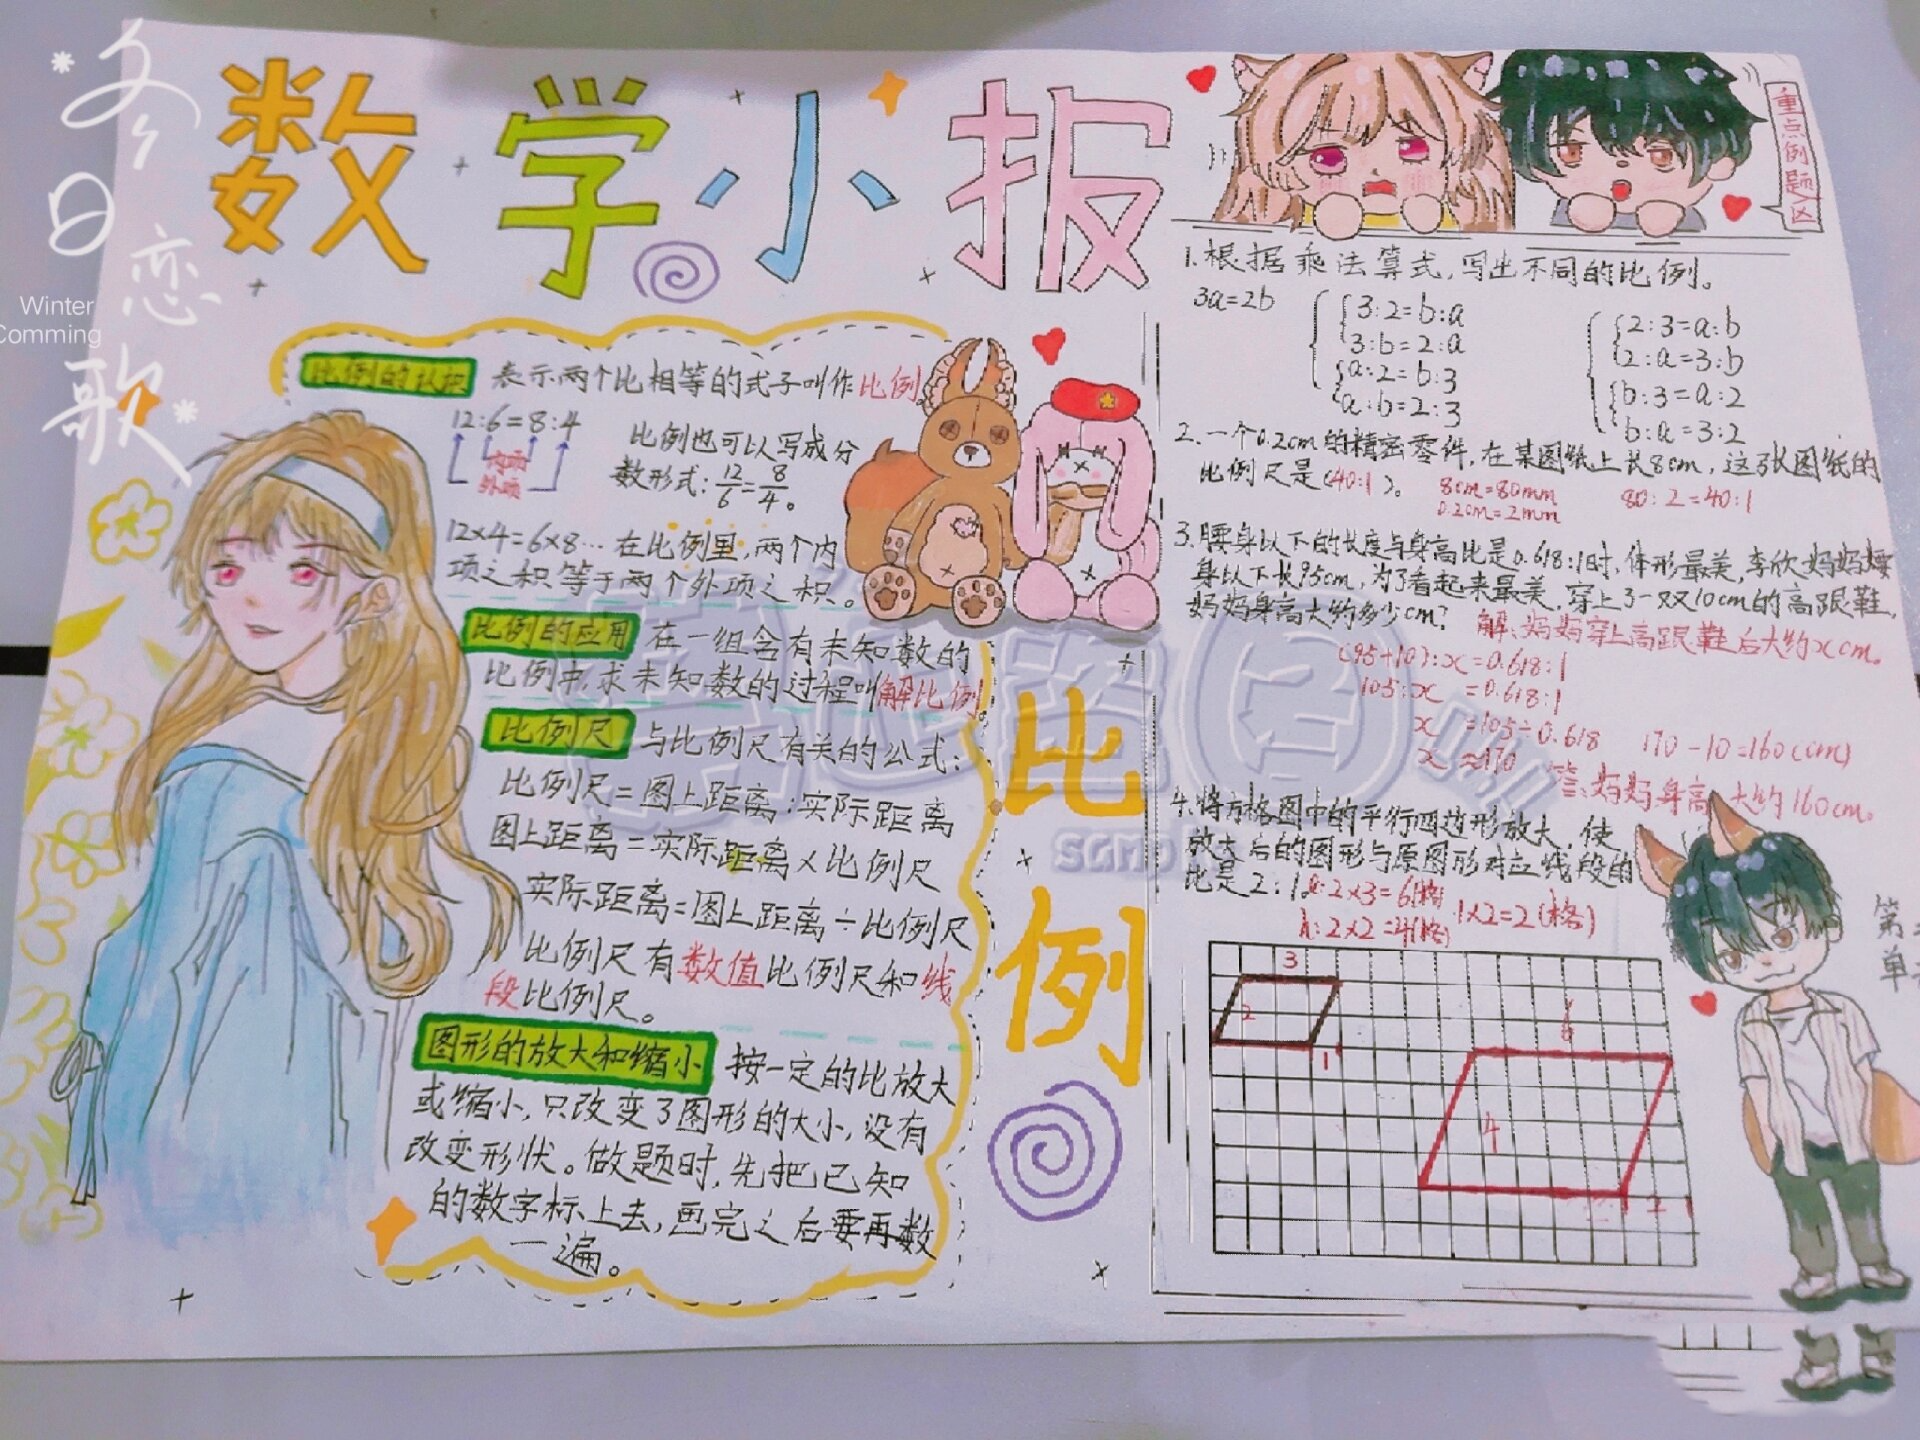 冬日恋歌
Winter
Comming
数学小报
比例的认识 表示两个比相等的式子叫作比例
12:6=8:4
内项
外项
比例也可以写成分
数形式:12/6=8/4。
12×4=6×8…在比例里,两个内
项之积等于两个外项之积。
比例的应用 在一组含有未知数的
比例中,求未知数的过程叫解比例
比例尺 与比例尺有关的公式:
比例尺=图上距离:实际距离
图上距离=实际距离×比例尺
实际距离=图上距离÷比例尺
比例尺有数值比例尺和线
段比例尺。
图形的放大和缩小 按一定的比放大
或缩小,只改变了图形的大小,没有
改变形状。做题时,先把已知
的数字标上去,画完之后要再数
一遍。
比例
重点例题区
1.根据乘法算式,写出不同的比例。
3a=2b
3:2=b:a
3:b=2:a
a:2=b:3
a:b=2:3
2:3=a:b
2:a=3:b
b:3=a:2
b:a=3:2
2.一个0.2cm的精密零件,在某图纸上长8cm,这张图纸的
比例尺是(40:1)。
8cm=80mm
0.2cm=2mm
80:2=40:1
3.腰身以下的长度与身高比是0.618:1时,体形最美,李欣妈妈腰
身以下长95cm,为了看起来最美,穿上了一双10cm的高跟鞋,
妈妈身高大约多少cm?
解:妈妈穿上高跟鞋后大约xcm。
(95+10):x=0.618:1
105:x=0.618:1
x=105÷0.618
x≈170
170-10=160(cm)
答:妈妈身高大约160cm。
4.将方格图中的平行四边形放大,使
放大后的图形与原图形对应线段的
比是2:1。
a:2×3=6(格)
h:2×2=4(格)
1×2=2(格)
3
2
1
6
4
2
第
单